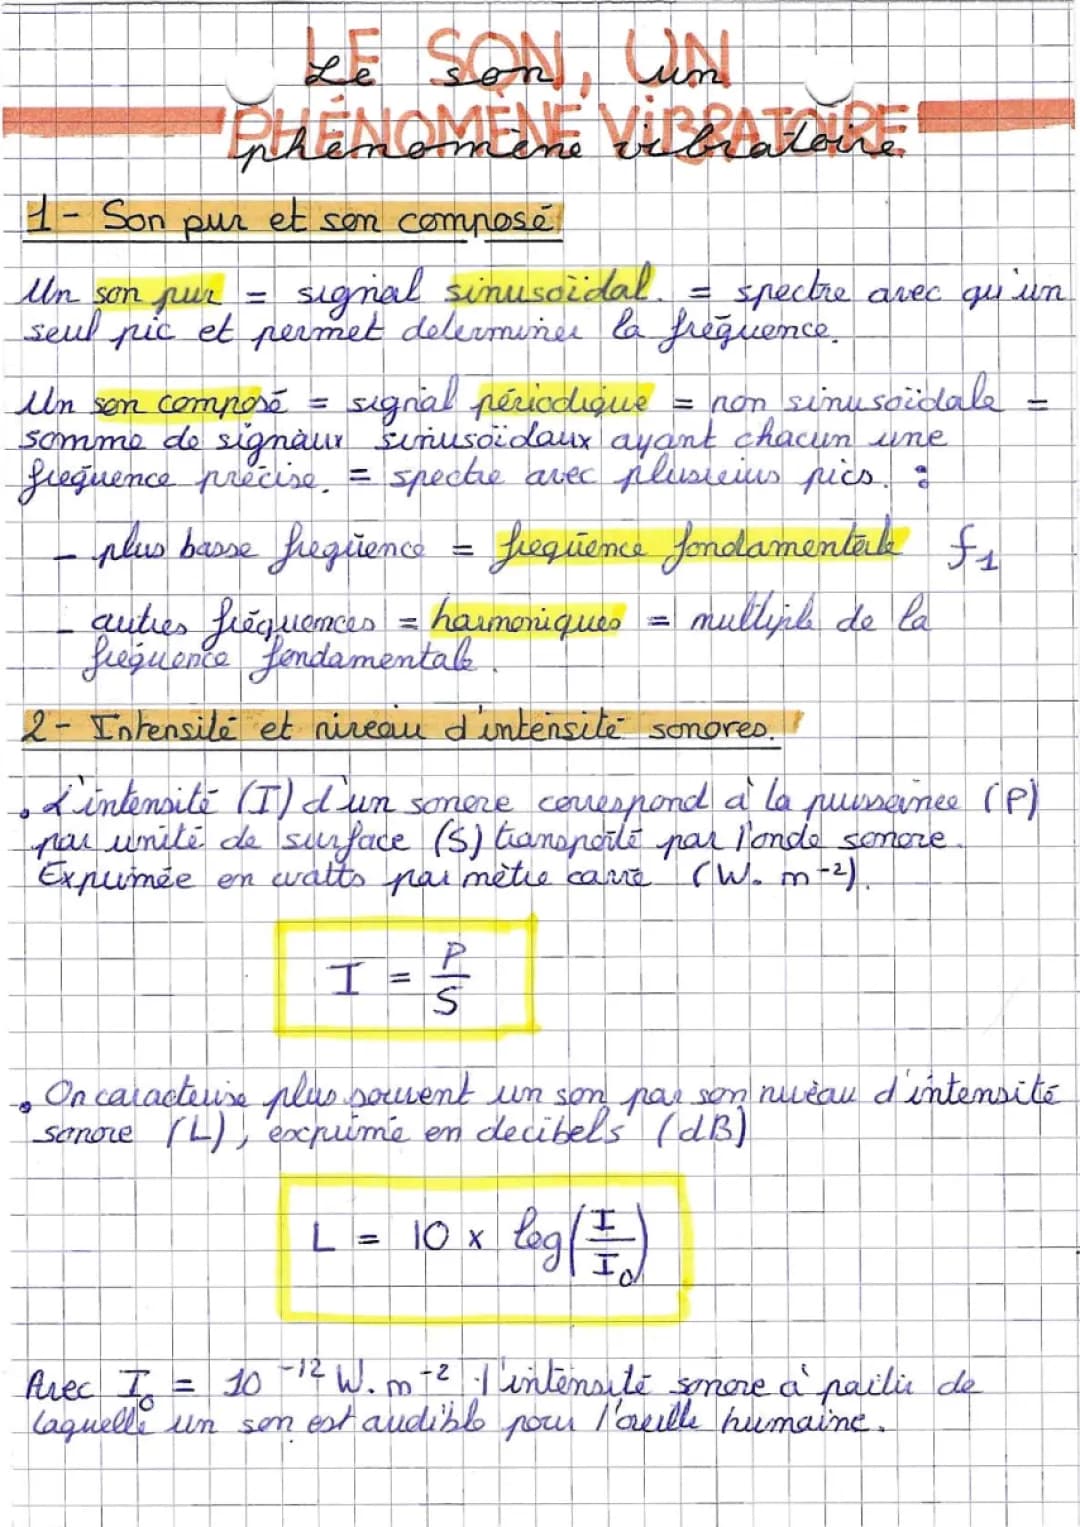 LE SON, UN
Le son, un
PHÉNOMÈNE ViBRATOIRE
phénomène vibratoire.
1 - Son pur et son composé
Un son pur = signal sinusoïdal. = spectre avec qu'un
seul pic et permet determiner la fréquence.
Un son composé = signal périodique = non sinusoïdale =
somme de signaux sinusoïdaux ayant chacun une
fréquence précise. = spectre avec plusieurs pics. :
- plus basse frequence = frequence fondamentale f1
- autres fréquences = harmoniques = multiple de la
fréquence fondamentale.
2 - Intensité et niveau d'intensité sonores.
• L'intensité (I) d'un sonore correspond à la puissance (P)
par unité de surface (S) transporté par l'onde sonore.
Exprimée en watts par mètre carré (W. m-2).
I = P/S
• On caracterise plus souvent un son par son niveau d'intensité
sonore (L), exprimé en decibels (dB)
L = 10 x log(I/I0)
Avec I0 = 10-12 W. m-2 l'intensité sonore à partir de
laquelle un son est audible pour l'oreille humaine.